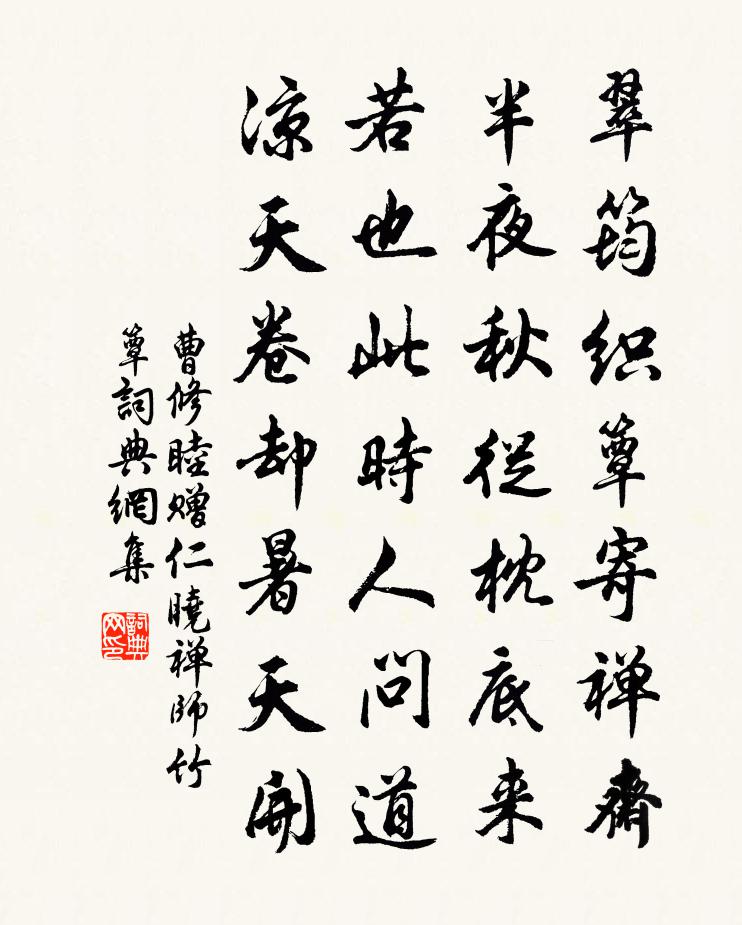 翠筠织簟寄禅齋
半夜秋從枕底来
若也此時人问道
凉天卷却暑天開
曹修睦赠仁曉禅師竹
簟詞典網集
詞典网印